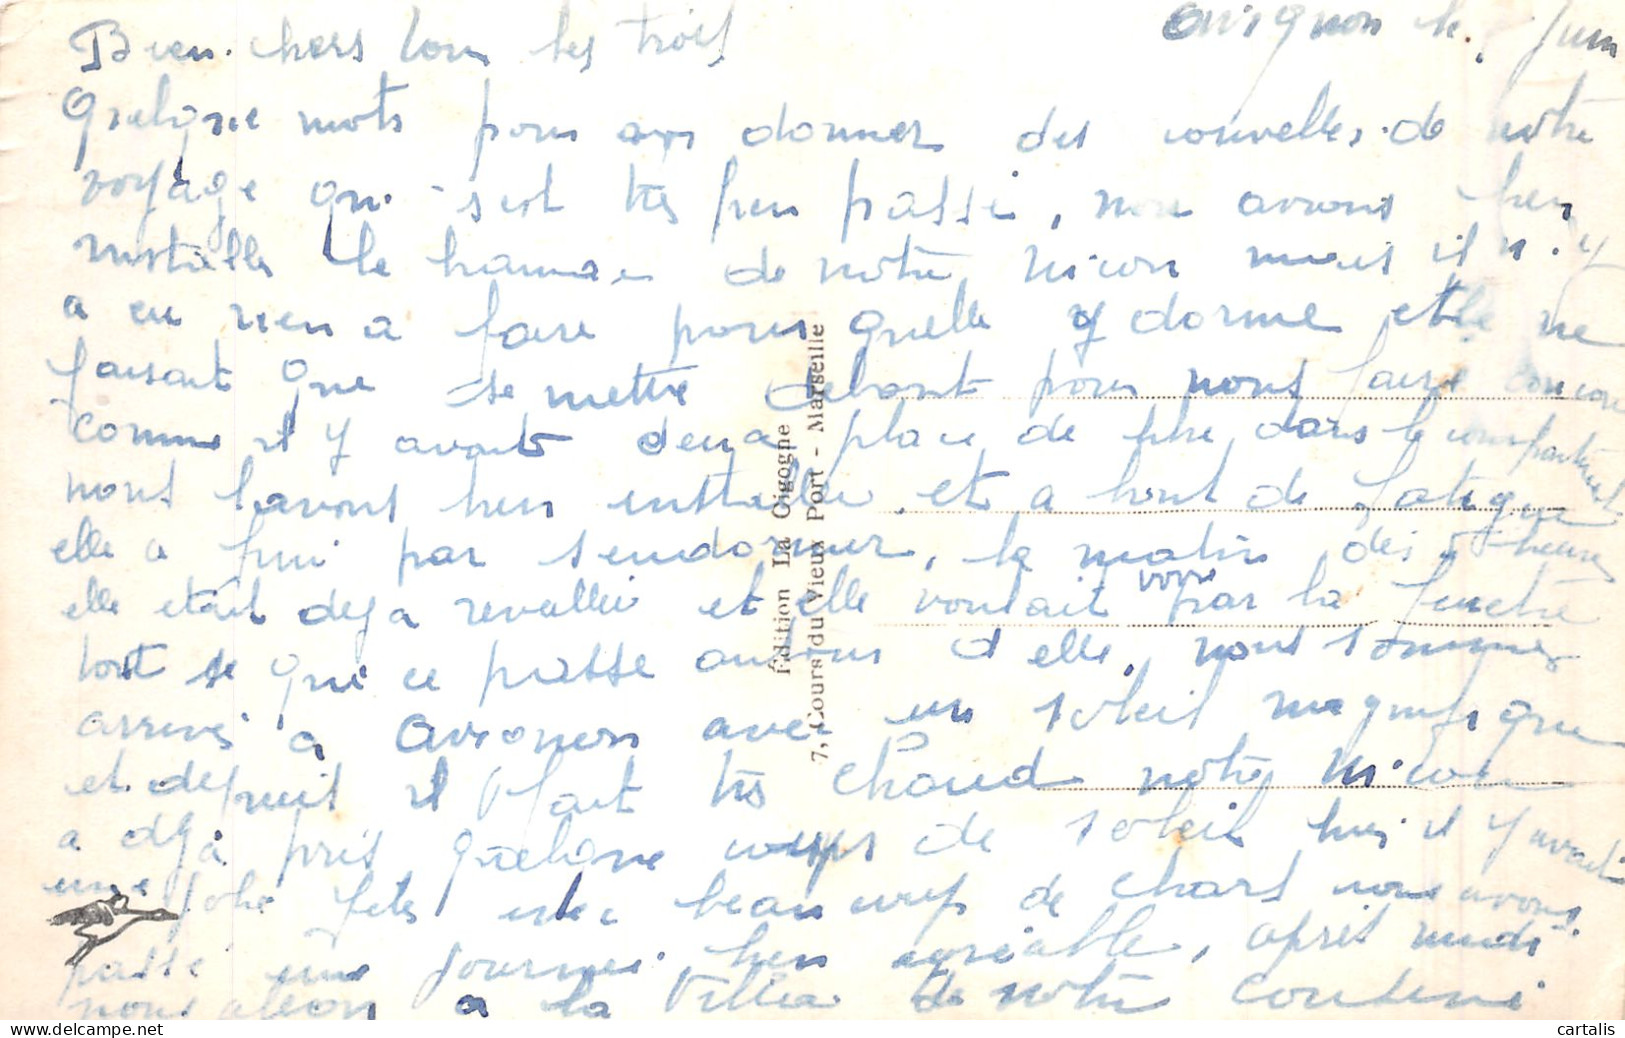 Avignon le Juin
Bien chers tous les trois
Quelque mots pour donner des nouvelles de notre
voyage qui s'est très bien passé, nous avons bien
installer le hamac de notre mais il n'y
a eu rien a faire pour quelle y dorme et elle ne
faisait que se mettre debout pour nous faire
comme il y avait deux place de libre dans le compartiment
nous l'avons bien installer, et a bout de fatigue
elle a fini par sendormir, le matin dès heures
elle etait deja reveillée et elle voulait voir par la fenetre
tout se qui ce passe autour d'elle, nous sommes
arrivés a Avignon avec un soleil magnifique
et depuis il fait très chaud notre
a deja pris quelque coups de soleil hier il y avait
une jolie fete avec beaucoup de chars nous avons
passé une journée bien agréable, après midi
nous allons a la Villa de notre cousine
Édition La Cigogne
7, Cours du Vieux Port - Marseille
cartalis